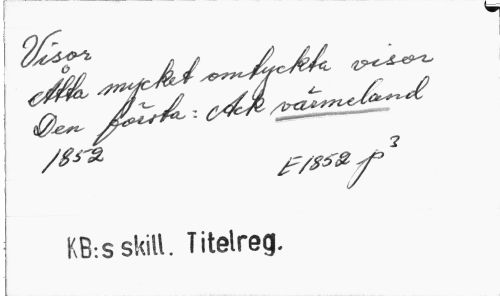 Visor
Åtta mycket omtyckta visor
Den första: Ack värmeland
1852
E1852 p3
KB:s skill. Titelreg.